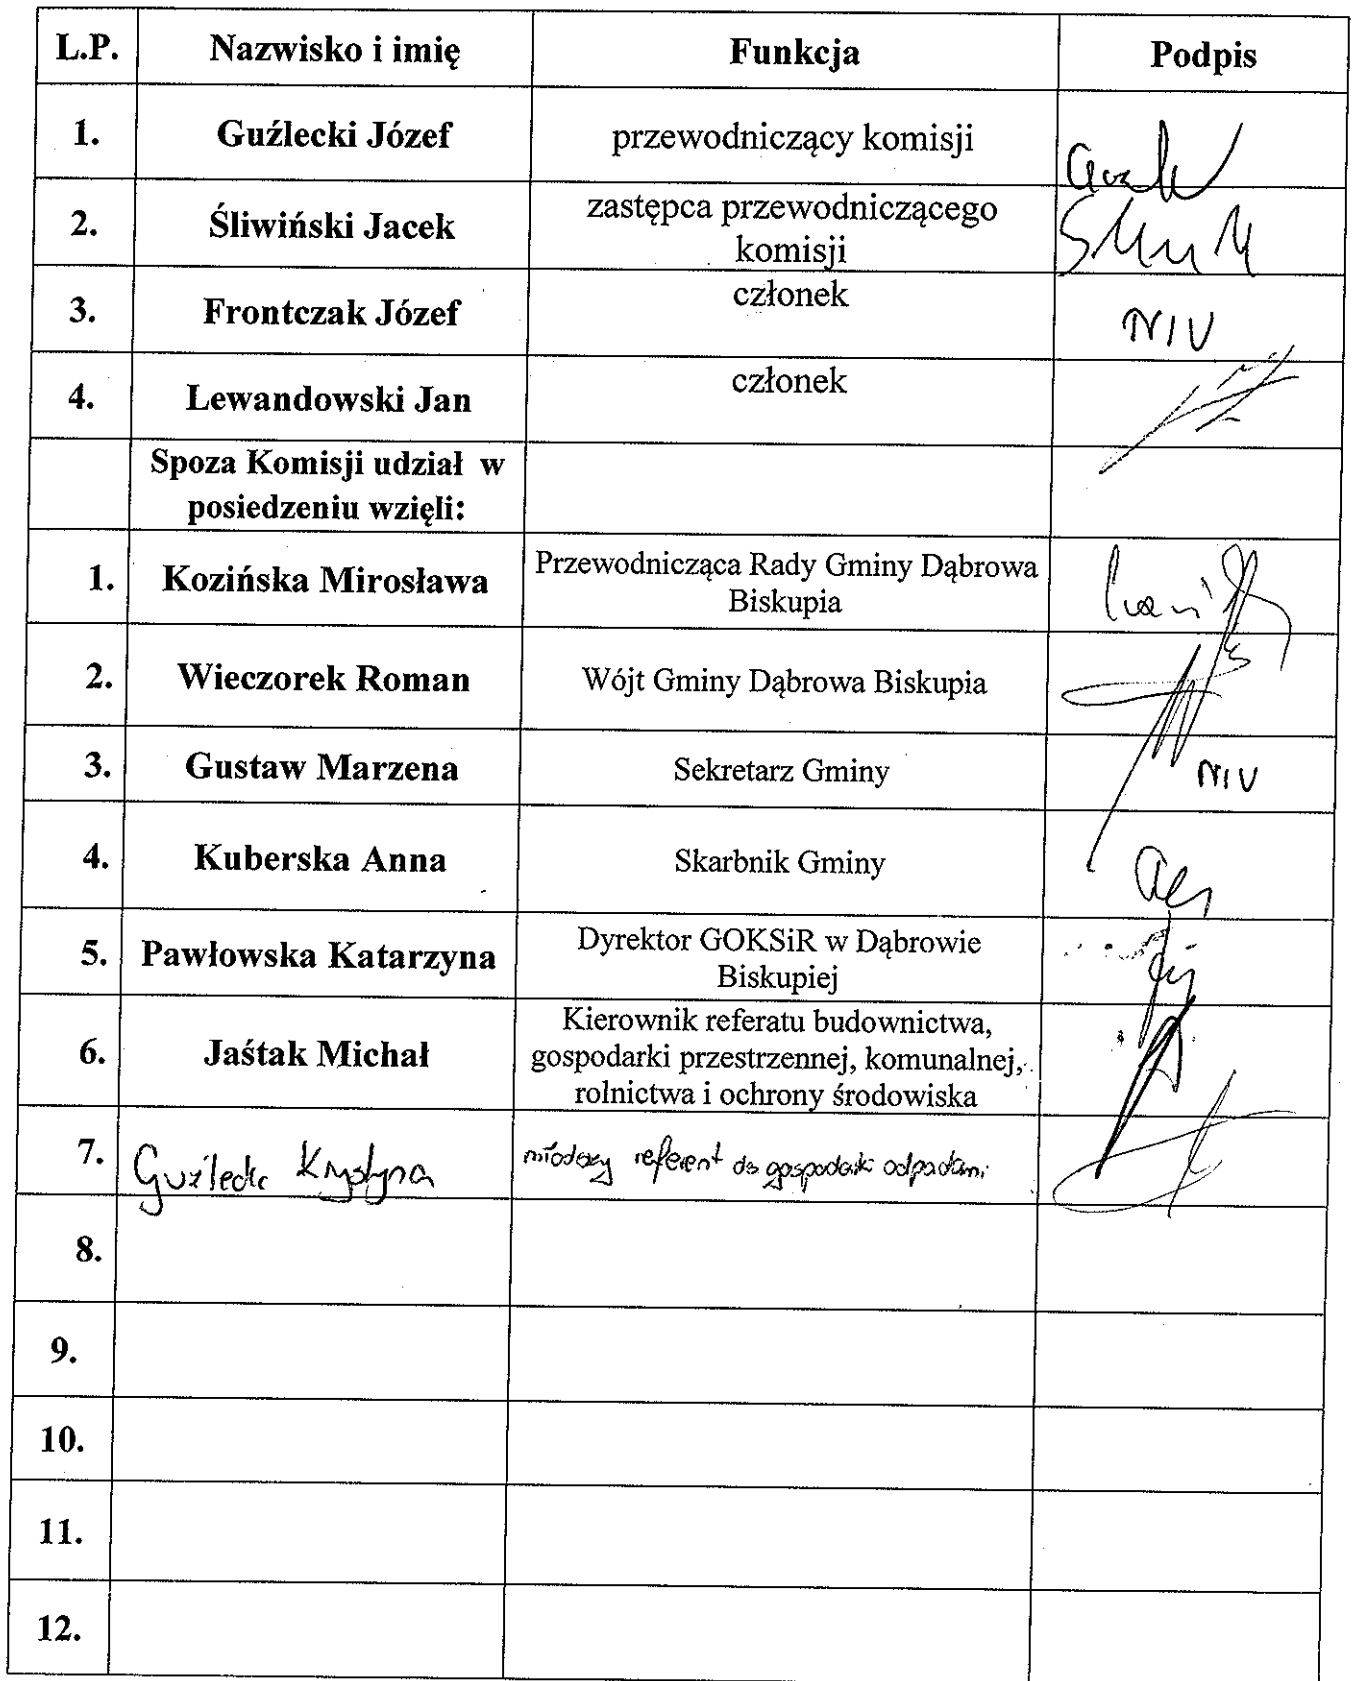 L.P. Nazwisko i imię Funkcja Podpis
1. Guźlecki Józef przewodniczący komisji
2. Śliwiński Jacek zastępca przewodniczącego
komisji
3. Frontczak Józef członek NIU
4. Lewandowski Jan członek
Spoza Komisji udział w
posiedzeniu wzięli:
1. Kozińska Mirosława Przewodnicząca Rady Gminy Dąbrowa
Biskupia
2. Wieczorek Roman Wójt Gminy Dąbrowa Biskupia
3. Gustaw Marzena Sekretarz Gminy NIU
4. Kuberska Anna Skarbnik Gminy
5. Pawłowska Katarzyna Dyrektor GOKSiR w Dąbrowie
Biskupiej
6. Jaśtak Michał Kierownik referatu budownictwa,
gospodarki przestrzennej, komunalnej,
rolnictwa i ochrony środowiska
7. Guźlecka Krystyna młodszy referent ds gospodarki odpadami
8.
9.
10.
11.
12.